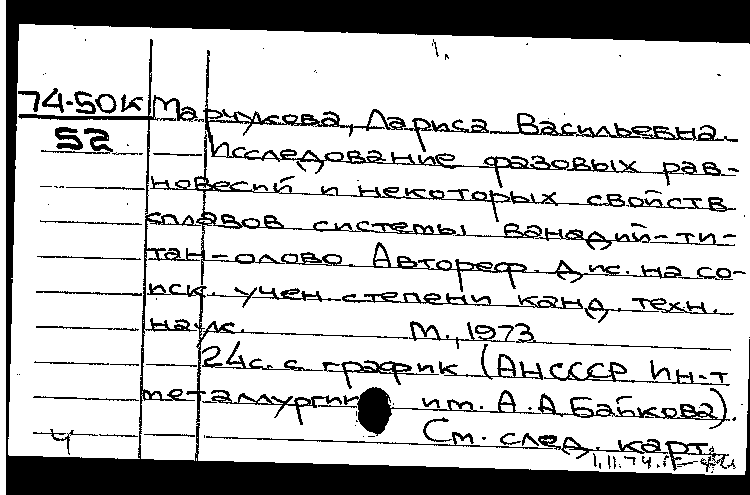 74-50к Марчукова, Лариса Васильевна.
52
Исследование фазовых рав-
новесий и некоторых свойств
сплавов системы ванадий-ти-
тан-олово. Автореф. дис. на со-
иск. учен. степени канд. техн.
наук. М., 1973
24с. с. график (АН СССР Ин-т
металлургии им. А. А. Байкова).
См. след. карт.
4